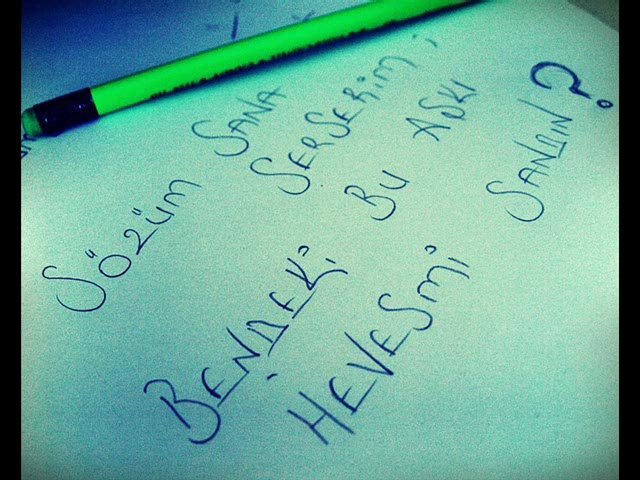 SÖZÜM SANA SERSERİM;
BENDEKİ BU AŞKI
HEVESMİ SANDIN?